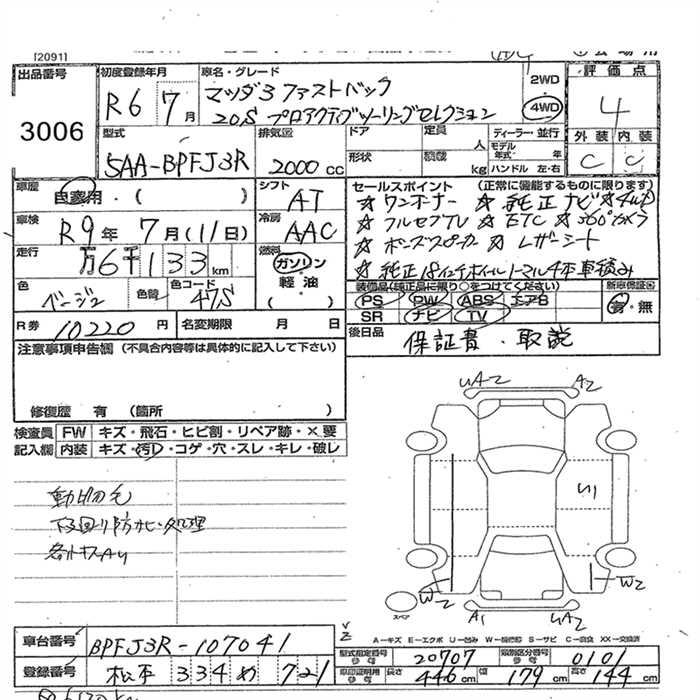 [2091]
出品番号
3006
初度登録年月
R6 7月
車名・グレード
マツダ3 ファストバック
20S プロアクティブツーリングセレクション
2WD
4WD
評価点
4
外装 内装
C C
型式
5AA-BPFJ3R
排気量
2000 cc
ドア
形状
定員
人
積載
kg
ディーラー・並行
モデル年式 年
ハンドル 左・右
車歴
自家用・( )
シフト
AT
車検
R9年 7月(11日)
冷房
AAC
走行
万6千133km
燃料
ガソリン
軽油
( )
色
ベージュ
色替
色コード
47S
R券
10220円
名変期限 月 日
セールスポイント (正常に機能するものに限ります)
☆ワンオーナー ☆純正ナビ ☆4WD
☆フルセグTV ☆ETC ☆360°カメラ
☆ボーズスピーカー ☆レザーシート
☆純正18インチホイルノーマル4本車積み
装備品(純正品に限り○をつけてください)
PS PW ABS エアB
SR ナビ TV
新車保証書
有・無
後日品
保証書・取説
注意事項申告欄 (不具合内容等は具体的に記入して下さい)
修復歴 有 (箇所 )
検査員
記入欄
FW キズ・飛石・ヒビ割・リペア跡・×要
内装 キズ・汚れ・コゲ・穴・スレ・キレ・破レ
動物毛
下回り防サビ処理
各小キズAU
UA2
A2
U1
W2
W2
A1
UA2
スペア
A−キズ E−エクボ U−凹み W−補修跡 S−サビ C−腐食 XX−交換済
車台番号
BPFJ3R-107041
登録番号
松本 334 め 721
型式指定番号
参考
20707
類別区分番号
参考
0101
車印証明用
参考
長さ
446cm
幅
179cm
高さ
144cm